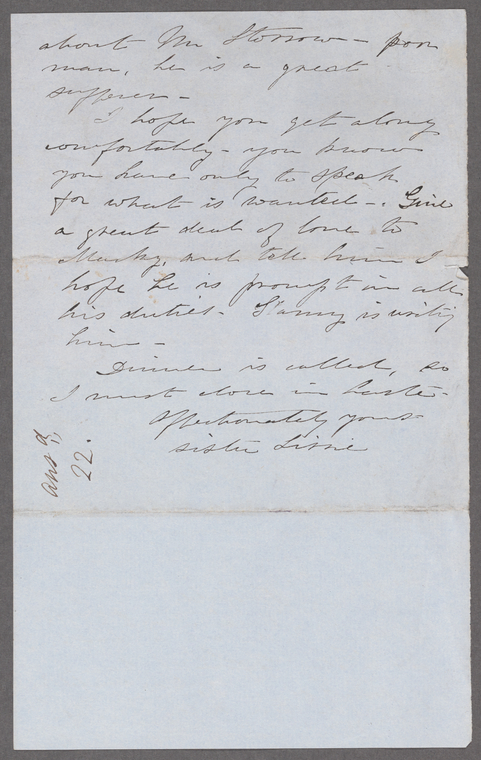 about Mr Storrow - poor
man, he is a great
sufferer -
I hope you get along
comfortably - you know
you have only to speak
for what is wanted -. Give
a great deal of love to
Macky, and tell him I
hope he is prompt in all
his duties - Fanny is writing
him -
Dinner is called, so
I must close in haste -
Affectionately yours
sister Lizzie
ans'd
22.